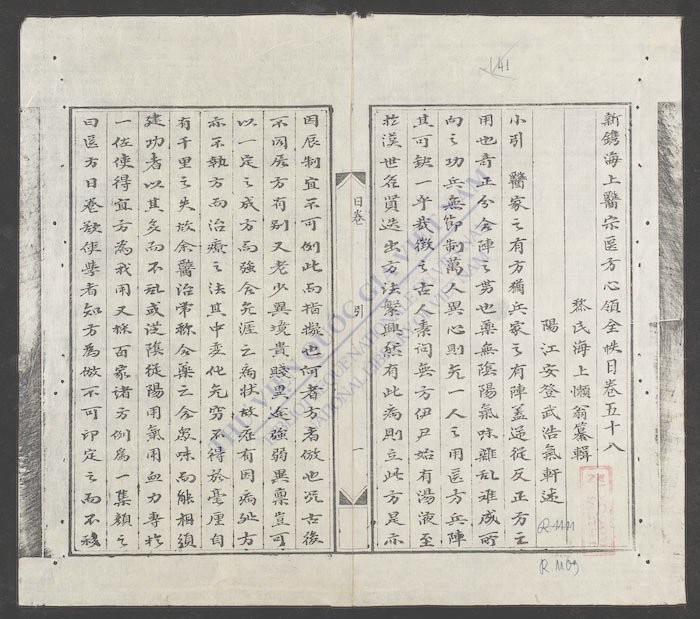 141
新鐫海上醫宗医方心領全帙日卷五十八
黎氏海上懶翁纂輯
陽江安登武浩氣軒述
小引 醫家之有方猶兵家之有陣蓋逆從反正方之
用也奇正分合陣之勢也藥無陰陽氣味雜乱难成所
向之功兵無節制萬人異心則无一人之用医方兵陣
其可缺一乎哉徵之古人素問無方伊尹始有湯液至
於漢世名賢迭出方法繁興然有此病則立此方是亦
日卷 引 一
因辰制宜不可例此而指擬也何者方者倣也况古後
不同方有别又老少異境貴賤異途強弱異禀豈可
以一定之成方而強合无涯之病状故在有因病処方
亦不執方而治療之法其中变化无窮不得於毫厘自
有千里之失故余醫治常称合藥之合衆味而能相須
建功者以其多而不乱或從陰從陽用氣用血力專於
一任使得宜方為我用又採百家诸方例為一集顏之
曰医方日卷欲使孝者知方為倣不可印定之而不移
THƯ VIỆN QUỐC GIA VIỆT NAM
BIBLIOTHÈQUE NATIONALE DU VIETNAM
NATIONAL LIBRARY OF VIETNAM
R.1109